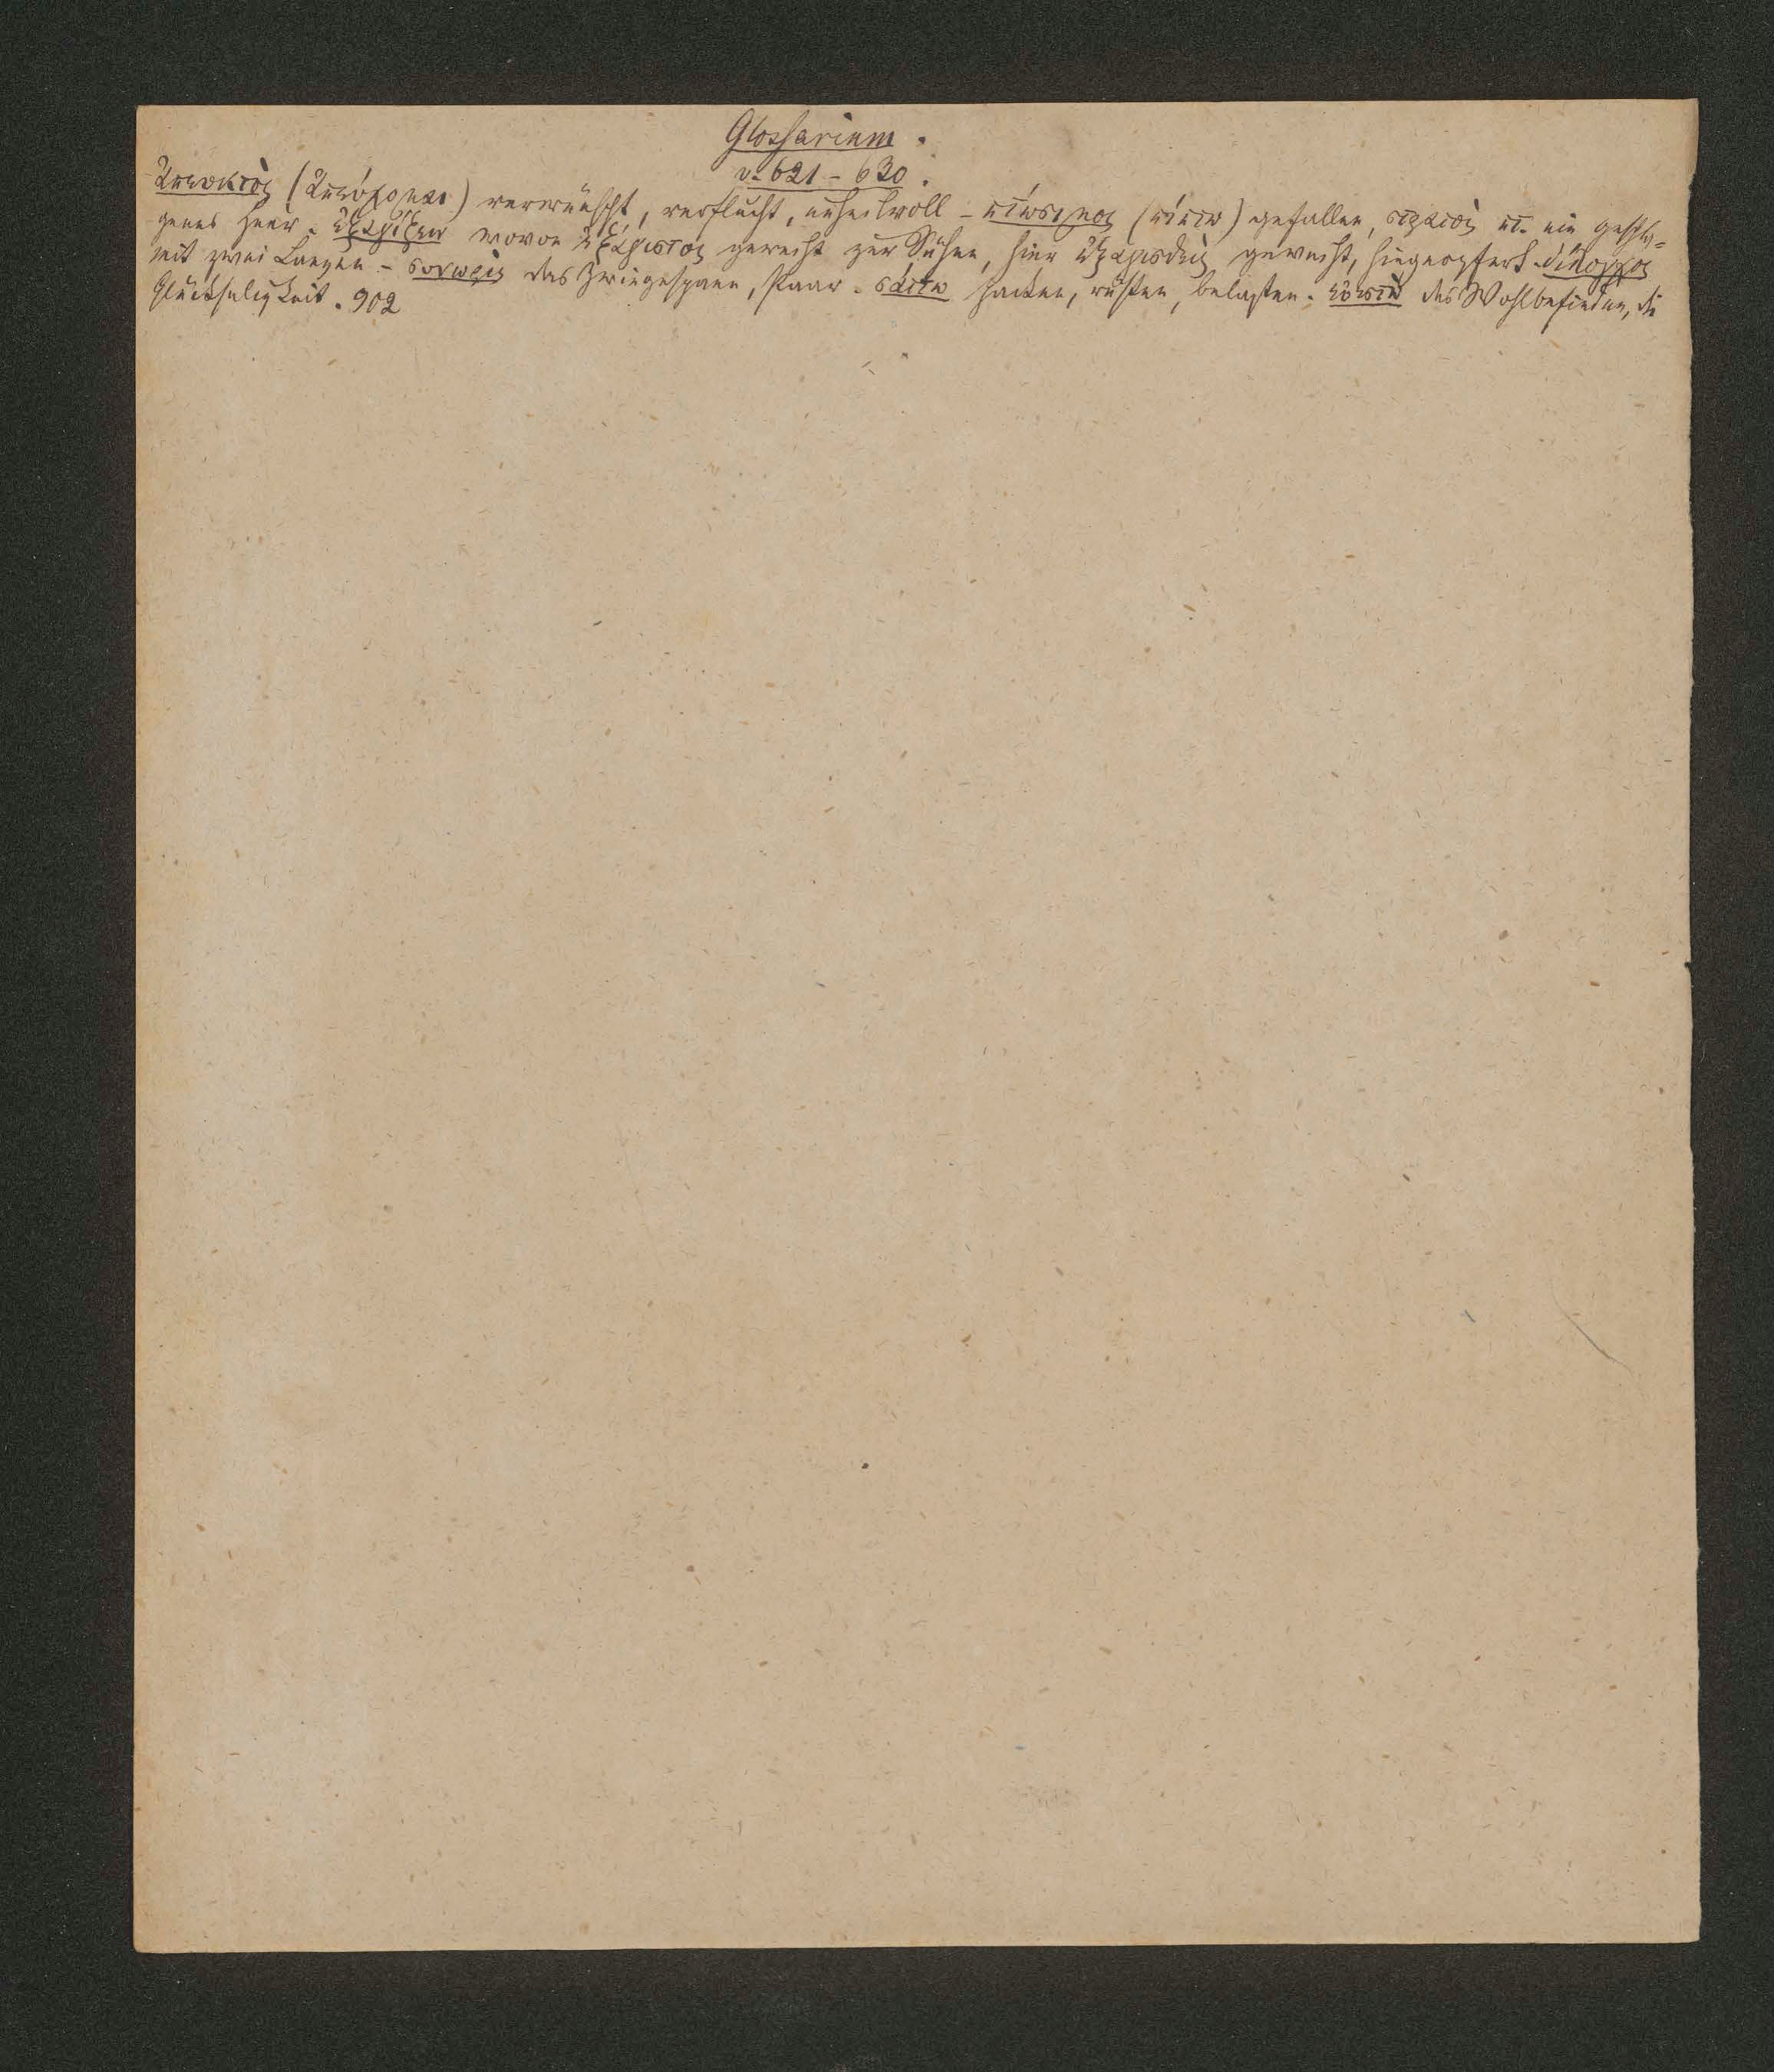 Glossarium.
v. 621 – 630.
ἀπευκτὸς (ἀπεύχομαι) verwünscht, verflucht, unheilvoll – πτώσιμος (πίπτω) gefallen, στρατὸς πτ. ein geschla=
genes Heer. ἐξαγίζειν wovon ἐξάγιστος geweiht zur Sühne, hier ἐξαγισθεὶς geweiht, hingeopfert. δίλογχος
mit zwei Lanzen – ξυνωρὶς das Zwiegespann, Paar. σάττω packen, rüsten, belasten. εὐεστὼ das Wohlbefinden, die
Glückseligkeit. 902